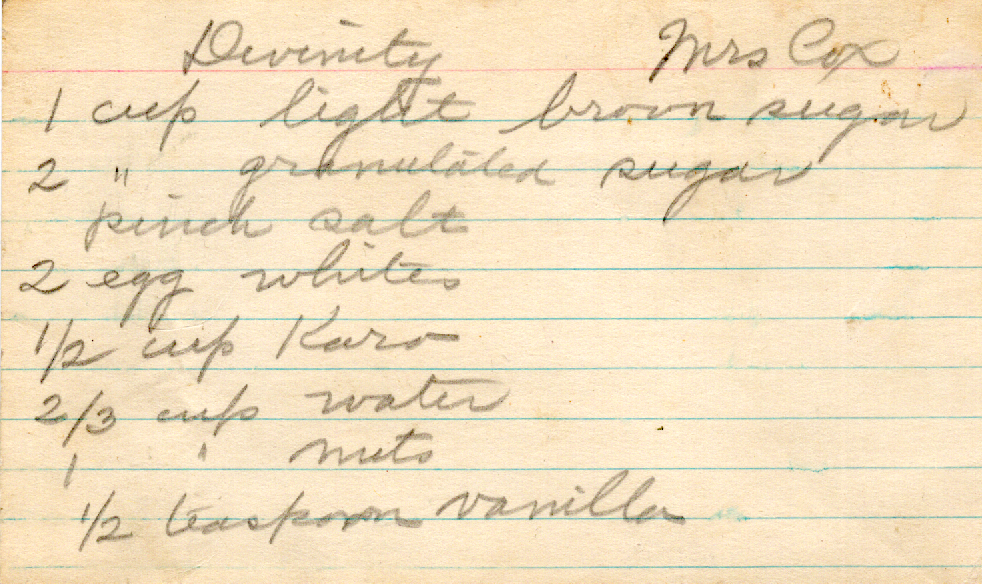 Divinity Mrs Cox
1 cup light brown sugar
2 " granulated sugar
pinch salt
2 egg whites
1/2 cup Karo
2/3 cup water
1 " nuts
1/2 teaspoon vanilla